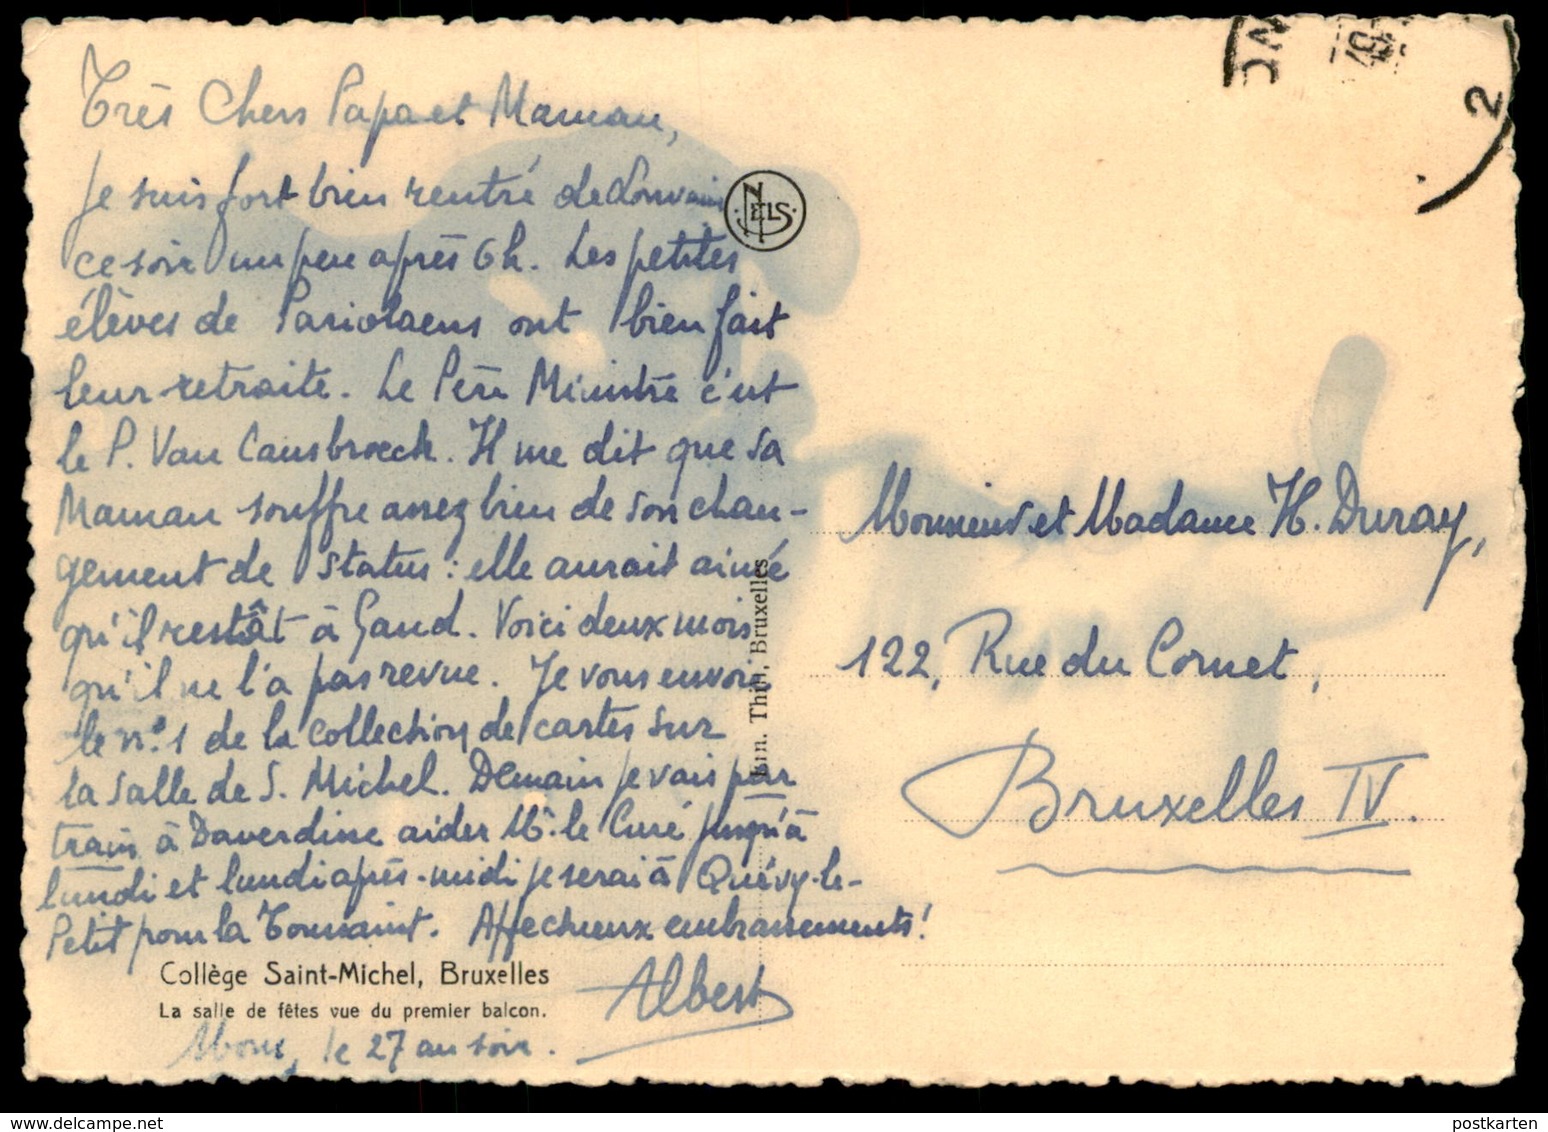 Très Chers Papa et Maman,
Je suis fort bien rentré de Louvain
ce soir un peu après 6 h. Les petites
élèves de Pariolaens ont bien fait
leur retraite. Le Père Ministre c'est
le P. Van Cansbroeck. Il me dit que sa
Maman souffre assez bien de son chan-
gement de status : elle aurait aimé
qu'il restât à Gand. Voici deux mois
qu'il ne l'a pas revue. Je vous envoie
le n° 1 de la collection de cartes sur
la salle de S. Michel. Demain je vais par
train à Daverdisse aider Mr. le Curé jusqu'à
lundi et lundi après-midi je serai à Quévy-le-
Petit pour la Toussaint. Affectueux embrassements !
Albert
Collège Saint-Michel, Bruxelles
La salle de fêtes vue du premier balcon.
Mons, le 27 au soir.
NELS
Ern. Thill, Bruxelles
2
Monsieur et Madame H. Duray,
122, Rue du Cornet,
Bruxelles IV.
postkarten